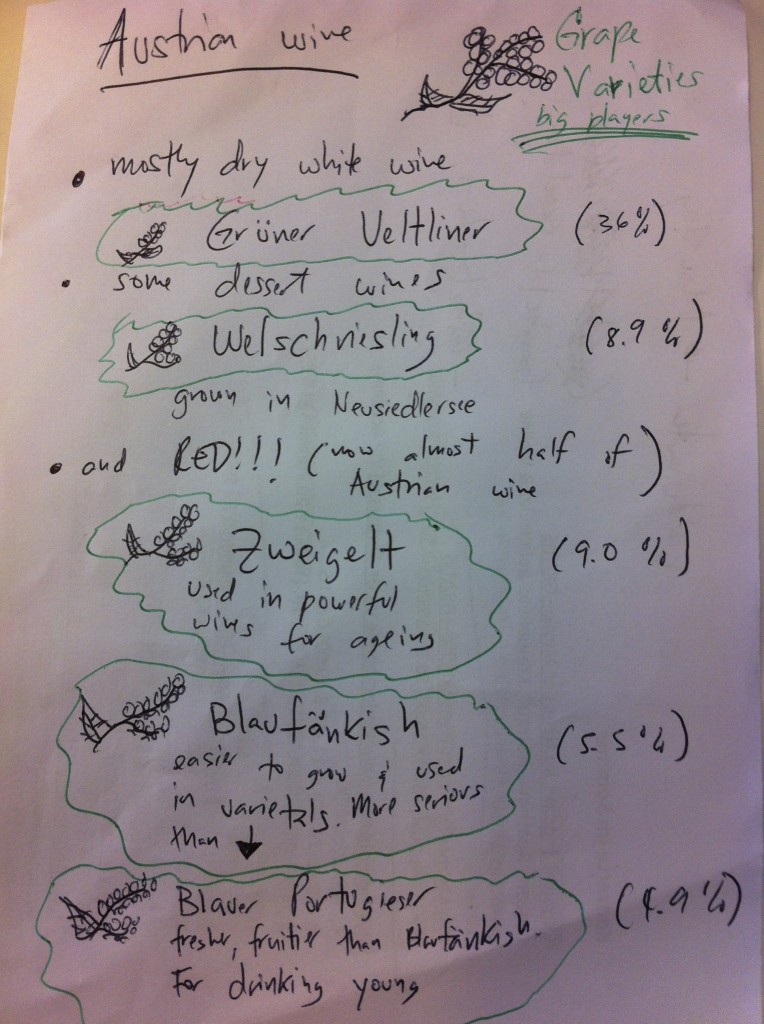 Austrian wine
Grape
Varieties
big players
• mostly dry white wine
Grüner Veltliner (36%)
• some dessert wines
Welschriesling (8.9 %)
grown in Neusiedlersee
• and RED!!! (now almost half of
Austrian wine)
Zweigelt (9.0 %)
used in powerful
wines for ageing
Blaufänkish (5.5 %)
easier to grow & used
in varietals. More serious
than ↓
Blauer Portugieser (4.9 %)
fresher, fruitier than Blaufänkish.
For drinking young